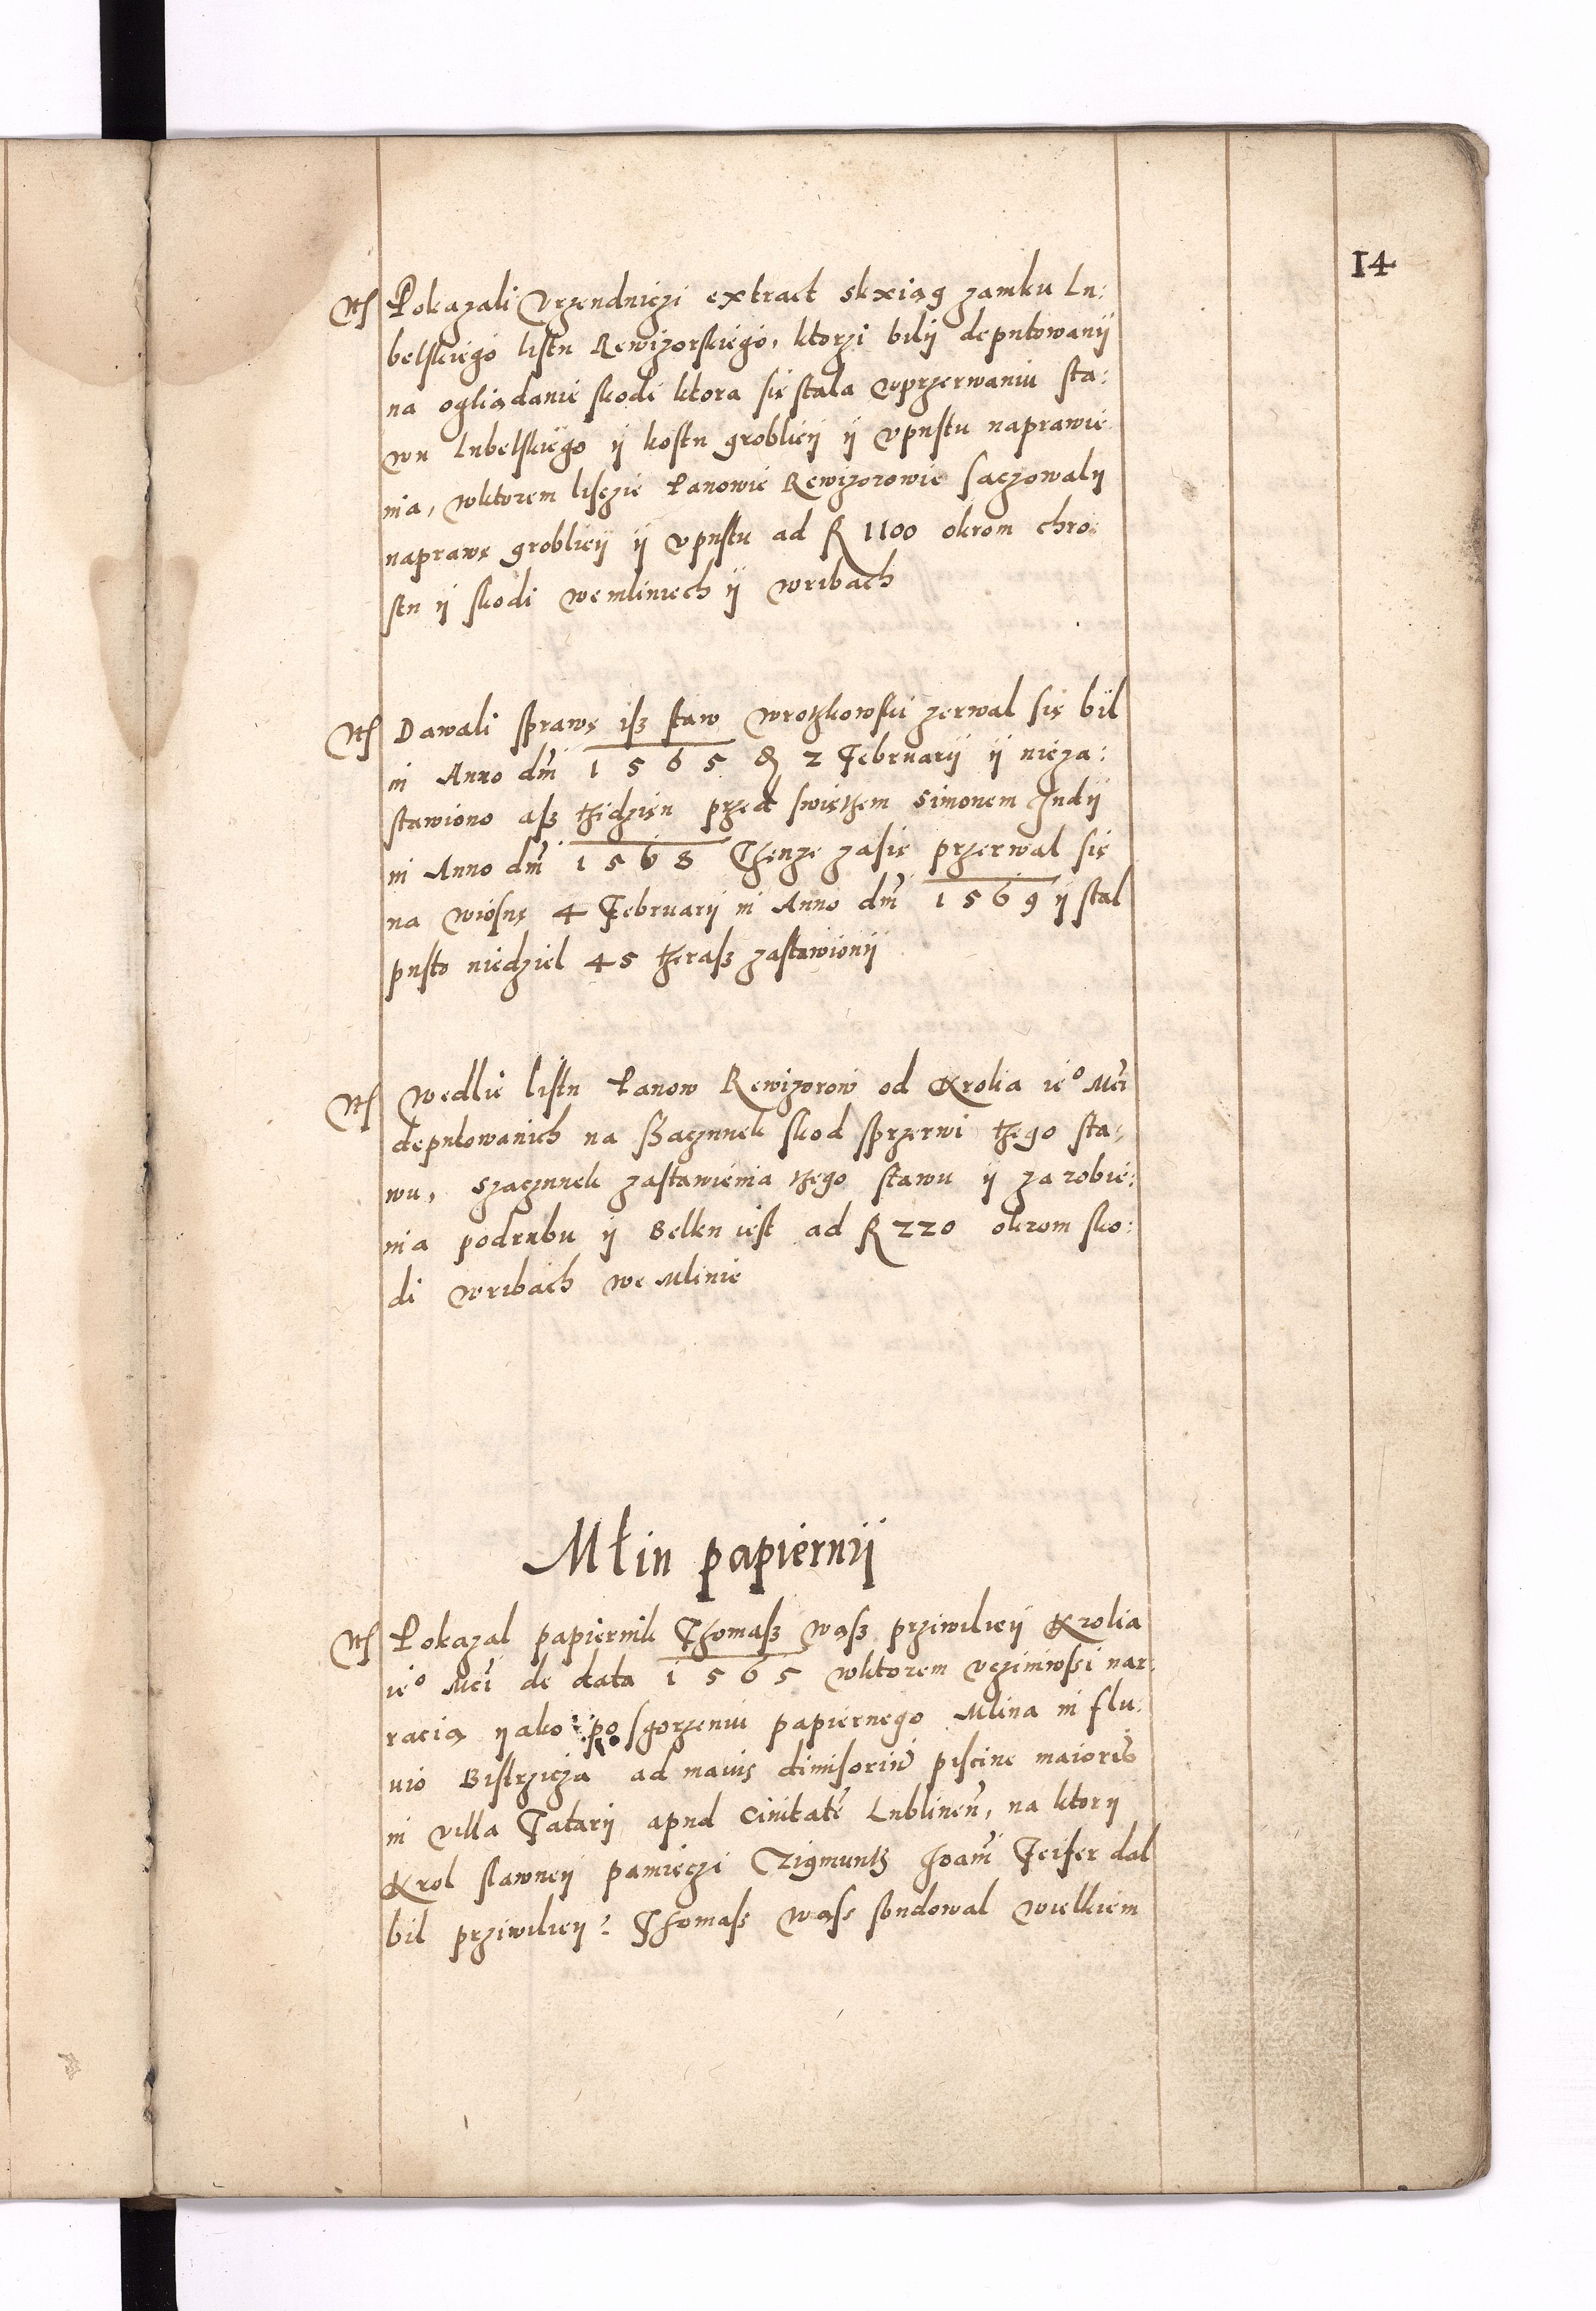 14
Pokazali Vrzendniczi extract skxiąg zamku Lu:
belskiego listu Rewizorskiego, ktorzi bilÿ deputowanÿ
na ogliądanie skodi ktora się stala wprzerwaniu sta:
wu Lubelskiego ÿ kostu grobliey ÿ vpustu naprawie
nia, wktorem lisczie Panowie Rewizorowie saczowalÿ
naprawę grobliey ÿ vpustu ad R 1100 okrom chro:
stu ÿ skodi wemliniech ÿ wribach
Dawali sprawę isz staw wrotzkowski zerwal się bil
in Anno dm̄ 1565 2 Februarÿ ÿ nieza:
stawiono asz tzidzięn przed swiętzem Simonem Judÿ
in Anno dm̄ 1568 Thenze zasię przerwal się
na wiosnę 4 Februarÿ in Anno dm̄ 1569 ÿ stal
pusto niedziel 45 tzerasz zastawionÿ
Wedlie listu Panow Rewizorow od Krolia ie° Mći
deputowanich na szaczunek skod sprzerwi tzego sta,
wu, szaczunek zastawienia tzego stawu ÿ zarobie:
nia podrubu ÿ Belku iest ad R 220 okrom sko:
di wribach we Mlinie
Młin papiernÿ
Pokazal papiernik Thomasz wąsz prziwiliey Krolia
ie° Mći de data 1565 wktorem vcziniwssi nar,
racią ÿako po sgorzeniu papiernego Mlina in flu,
uio Bistrzicza ad mauis dimisoriū piscine maioris
in villa Tatarÿ apud Ciuitatē Lublineñ, na ktorÿ
Krol slawneÿ pamięczi Zigmuntz Joañ Feifer dal
bil prziwilieÿ: Thomasz wąss fondowal wielkiem